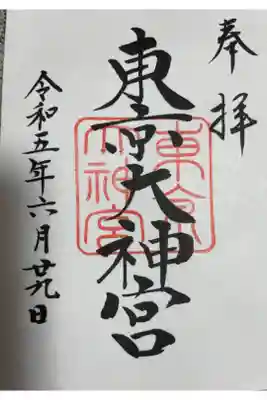 奉拝
東京大神宮
東京大神宮
令和五年六月廿九日